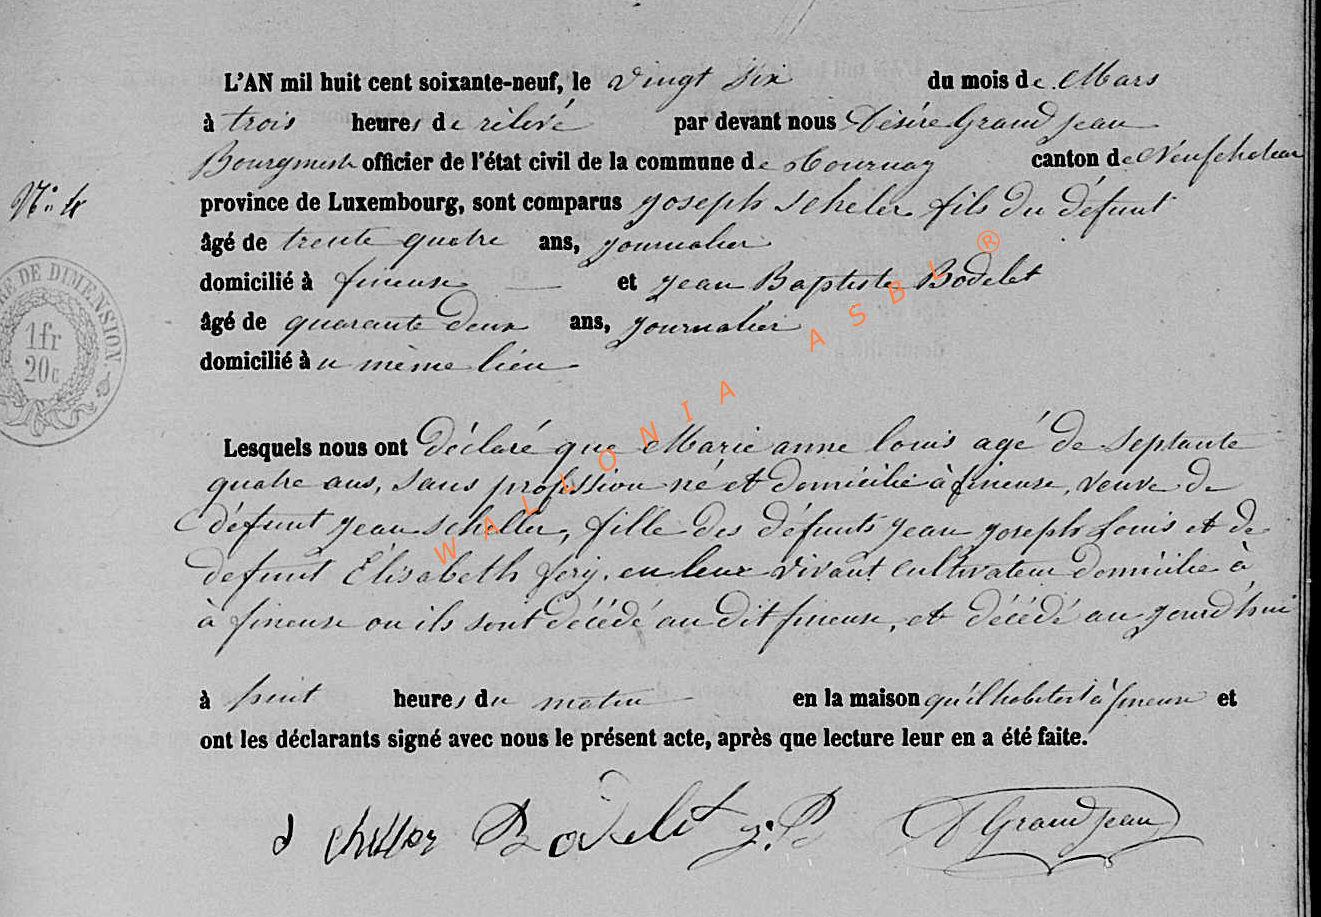 L'AN mil huit cent soixante-neuf, le vingt six du mois de Mars
à trois heures de rélevé par devant nous Désiré Grand Jean
Bourgmestre officier de l'état civil de la commune de Tournay canton de Neufchateau
N° 4
province de Luxembourg, sont comparus joseph Scheler fils du défunt
âgé de trente quatre ans, journalier
domicilié à fineuse et jean Baptiste Bodelet
âgé de quarante deux ans, journalier
domicilié à u même lieu
RE DE DIMENSION
1fr
20c
Lesquels nous ont déclaré que Marie anne louis agé de septante
quatre ans, sans profession né et domicilié à fineuse, veuve de
défunt jean scheller, fille des défunts jean joseph louis et de
defunt Élisabeth, en leur vivant cultivateur domicilié à
à fineuse ou ils sont décédé au dit fineuse, et décédé au jourd'hui
à huit heures du matin en la maison qu'il habitent à fineuse et
ont les déclarants signé avec nous le présent acte, après que lecture leur en a été faite.
Bodelet j:B D GrandJean
WALLONIA ASBL ®